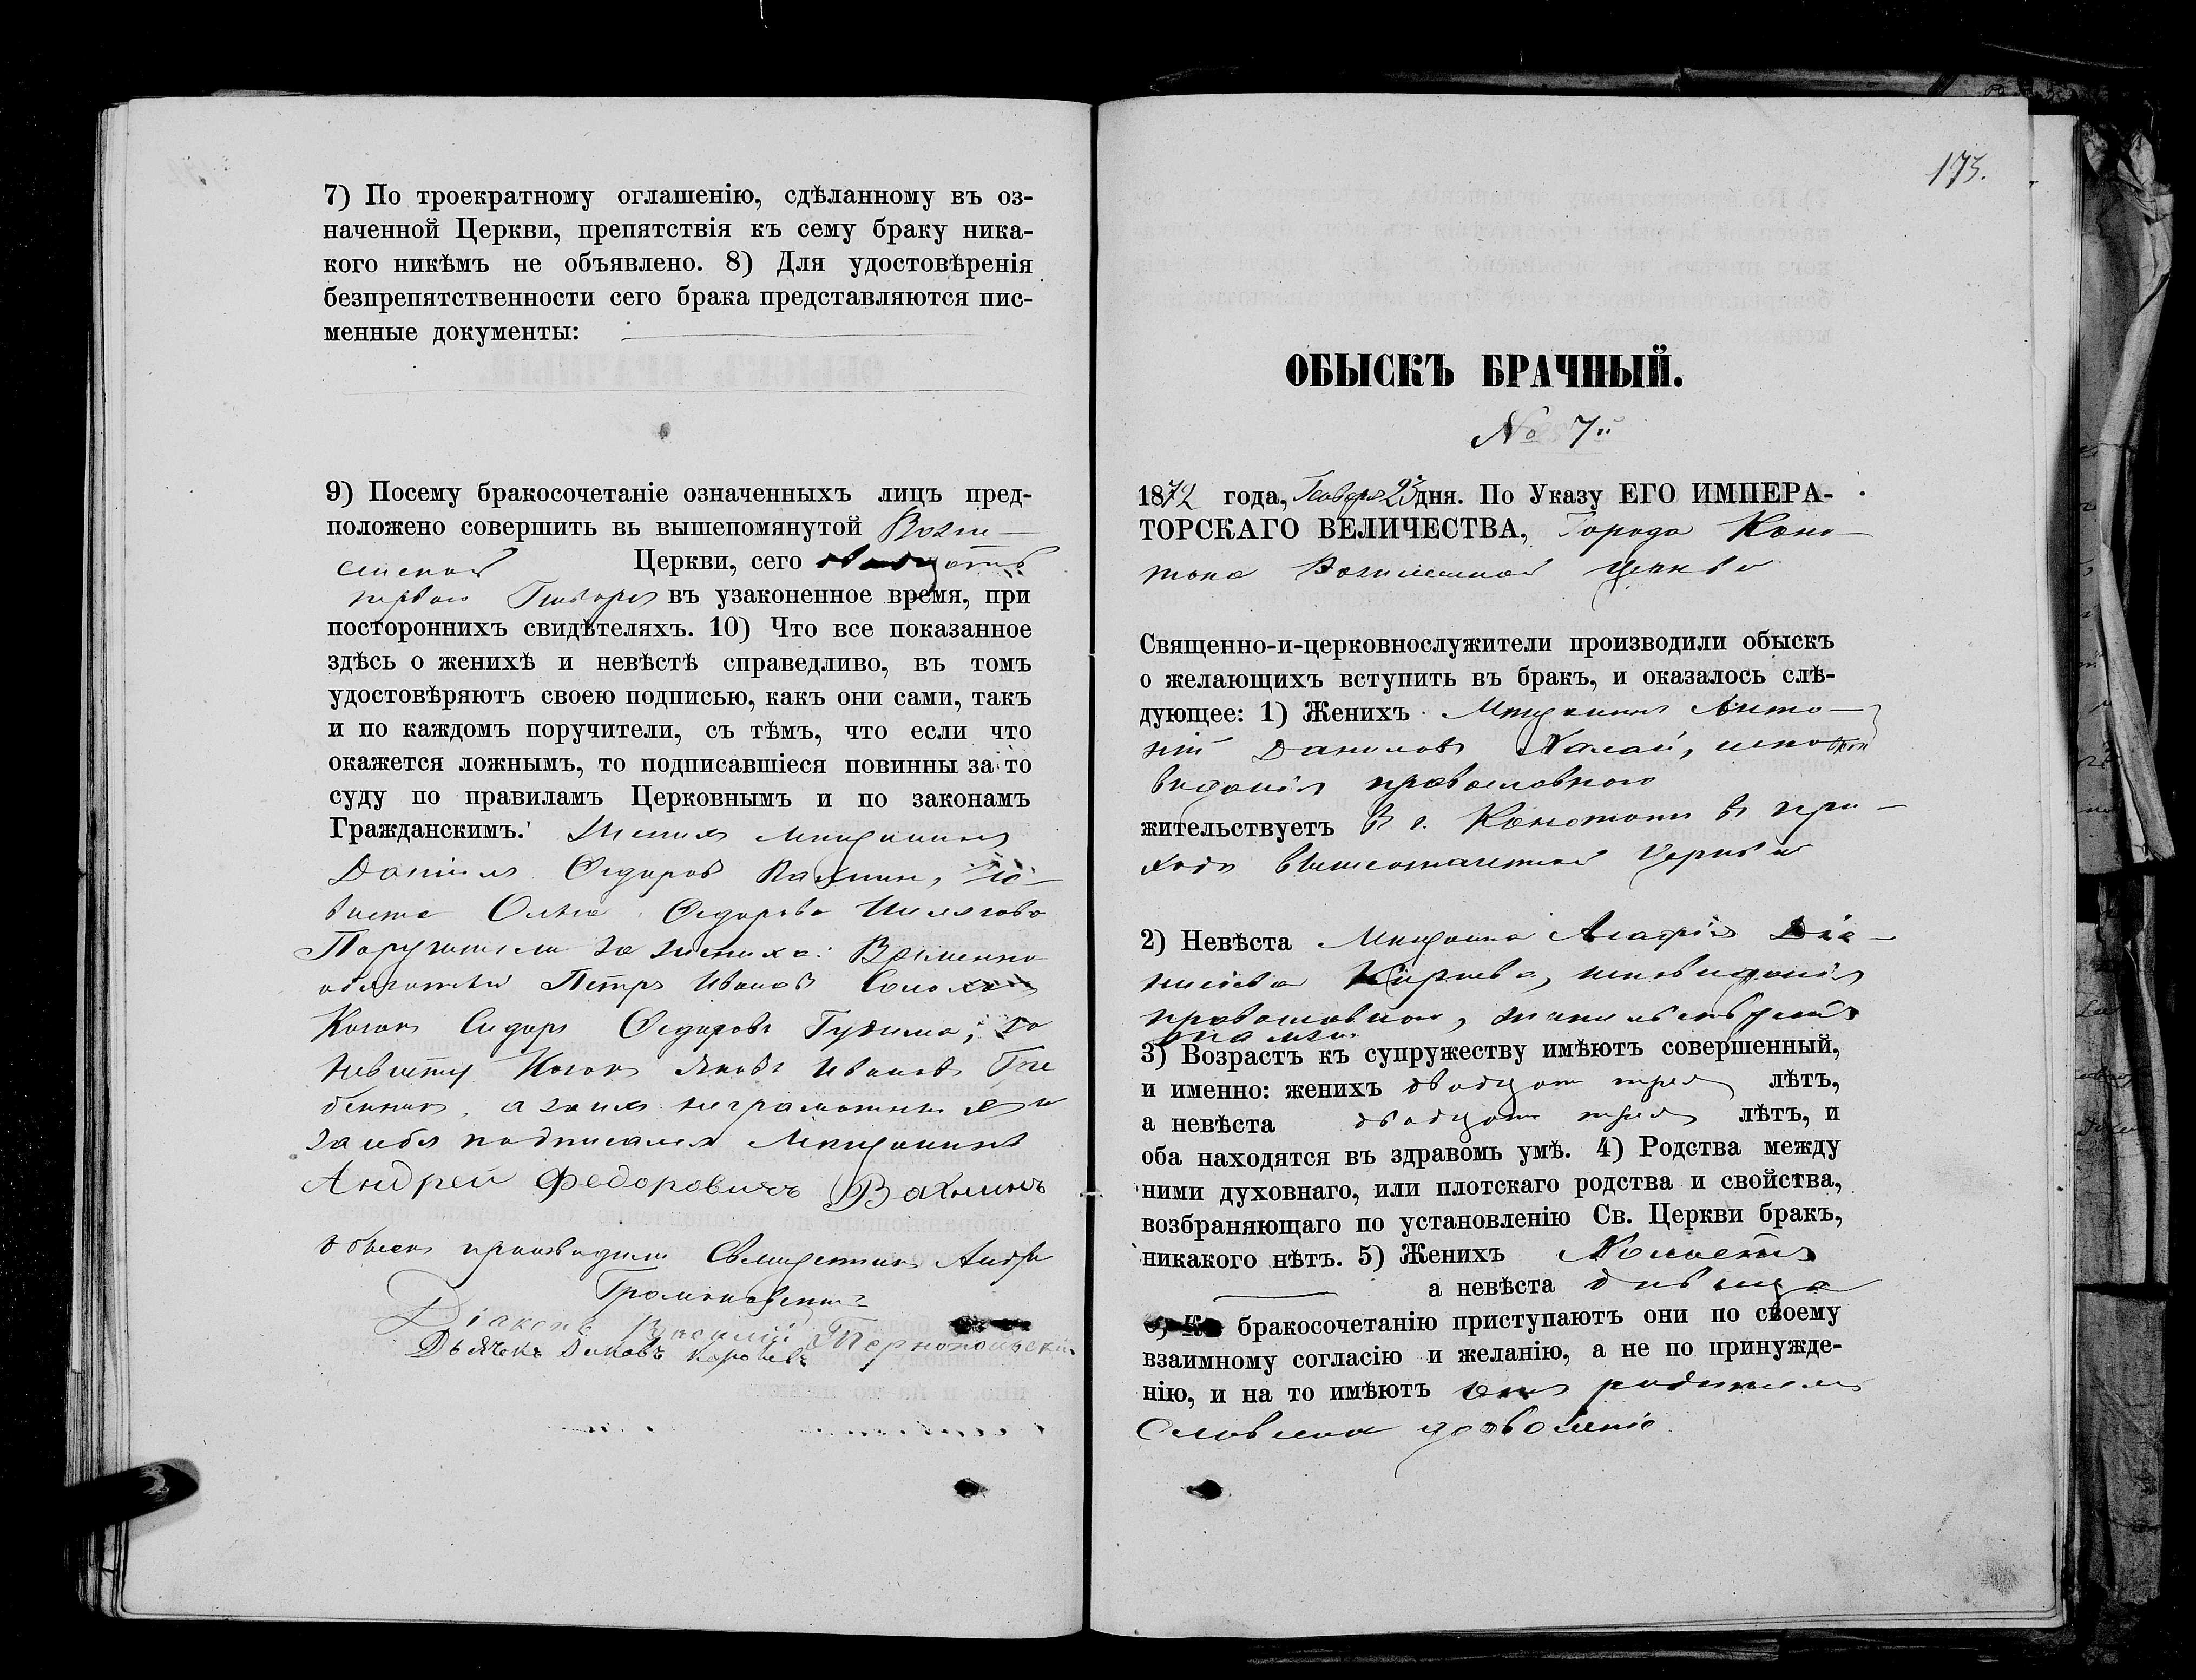 7) По троекратному оглашенію, сдѣланному въ оз-
наченной Церкви, препятствія къ сему браку ника-
кого никѣмъ не объявлено. 8) Для удостовѣренія
безпрепятственности сего брака представляются пис-
менные документы:
9) Посему бракосочетаніе означенныхъ лицъ пред-
положено совершить вь вышепомянутой Возне-
сенской Церкви, сего двадцать
первого Генваря въ узаконенное время, при
постороннихъ свидѣтеляхъ. 10) Что все показанное
здѣсь о женихѣ и невѣстѣ справедливо, въ томъ
удостовѣряютъ своею подписью, какъ они сами, такъ
и по каждомъ поручители, съ тѣмъ, что если что
окажется ложнымъ, то подписавшіеся повинны за то
суду по правиламъ Церковнымъ и по законамъ
Гражданскимъ. Женихъ мещанинъ
Даніилъ Ѳедоровъ не-
вѣста Ѳедорова
Поручители за жениха: Временно
обязанный Петръ Ивановъ
Козакъ Сидоръ Ѳедоровъ Гудима; по
невѣсте Козакъ Яковъ Ивановъ Гре
бенникъ, а за ихъ неграмотныхъ и
за себя подписался Мещанинъ
Андрей Федоровичъ Вахнинъ
Обыскъ производили Священникъ Андрей
Діаконъ Василій Тернопольскій
Дьячокъ Королевъ
173.
ОБЫСКЪ БРАЧНЫЙ.
№ 7й
1872 года, Генваря 23 дня. По Указу ЕГО ИМПЕРА-
ТОРСКАГО ВЕЛИЧЕСТВА, Города Коно-
топа Вознесенской церкви
Священно-и-церковнослужители производили обыскъ
о желающихъ вступить въ бракъ, и оказалось слѣ-
дующее: 1) Женихъ Мещанинъ Анто-
ній Даниловъ Халай, испо
веданія православного
жительствуетъ В г. Конотопе в при-
ходе вышеозначенной Церкви
2) Невѣста Мещанка Агафія Діо-
нисіева исповеданія
православного, жительствуетъ
тамъ же
3) Возрастъ къ супружеству имѣютъ совершенный,
и именно: женихъ двадцать три лѣтъ,
а невѣста двадцать три лѣтъ, и
оба находятся въ здравомь умѣ. 4) Родства между
ними духовнаго, или плотскаго родства и свойства,
возбраняющаго по установленію Св. Церкви бракъ,
никакого нѣтъ. 5) Женихъ Холостъ
а невѣста девица
6) Къ бракосочетанію приступаютъ они по своему
взаимному согласію и желанію, а не по принужде-
нію, и на то имѣютъ отъ родителей
Словесное дозволеніе.